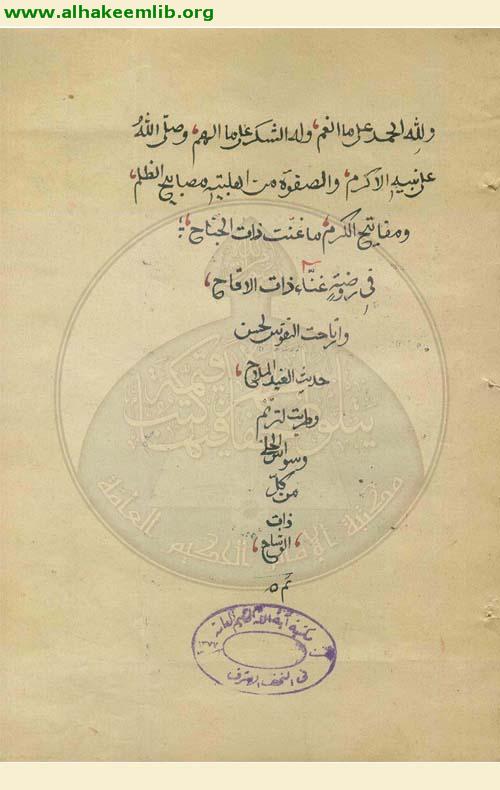 www.alhakeemlib.org
ولله الحمد على ما انعم، وله الشكر على ما الهم، وصلى الله
على نبيه الاكرم، والصفوة من اهل بيته مصابيح الظلم،
ومفاتيح الكرم، ما غنت ذات الجناح،
في روضة غناء ذات الاقاح،
وارتاحت النفوس لحسن
حديث الغيد الملاح،
وطربت لترنم
وسواس الحلي
من كل
ذات
الوشاح،
تم
مكتبة آية الله الحكيم العامة
في النجف الاشرف
مكتبة الإمام الحكيم العامة